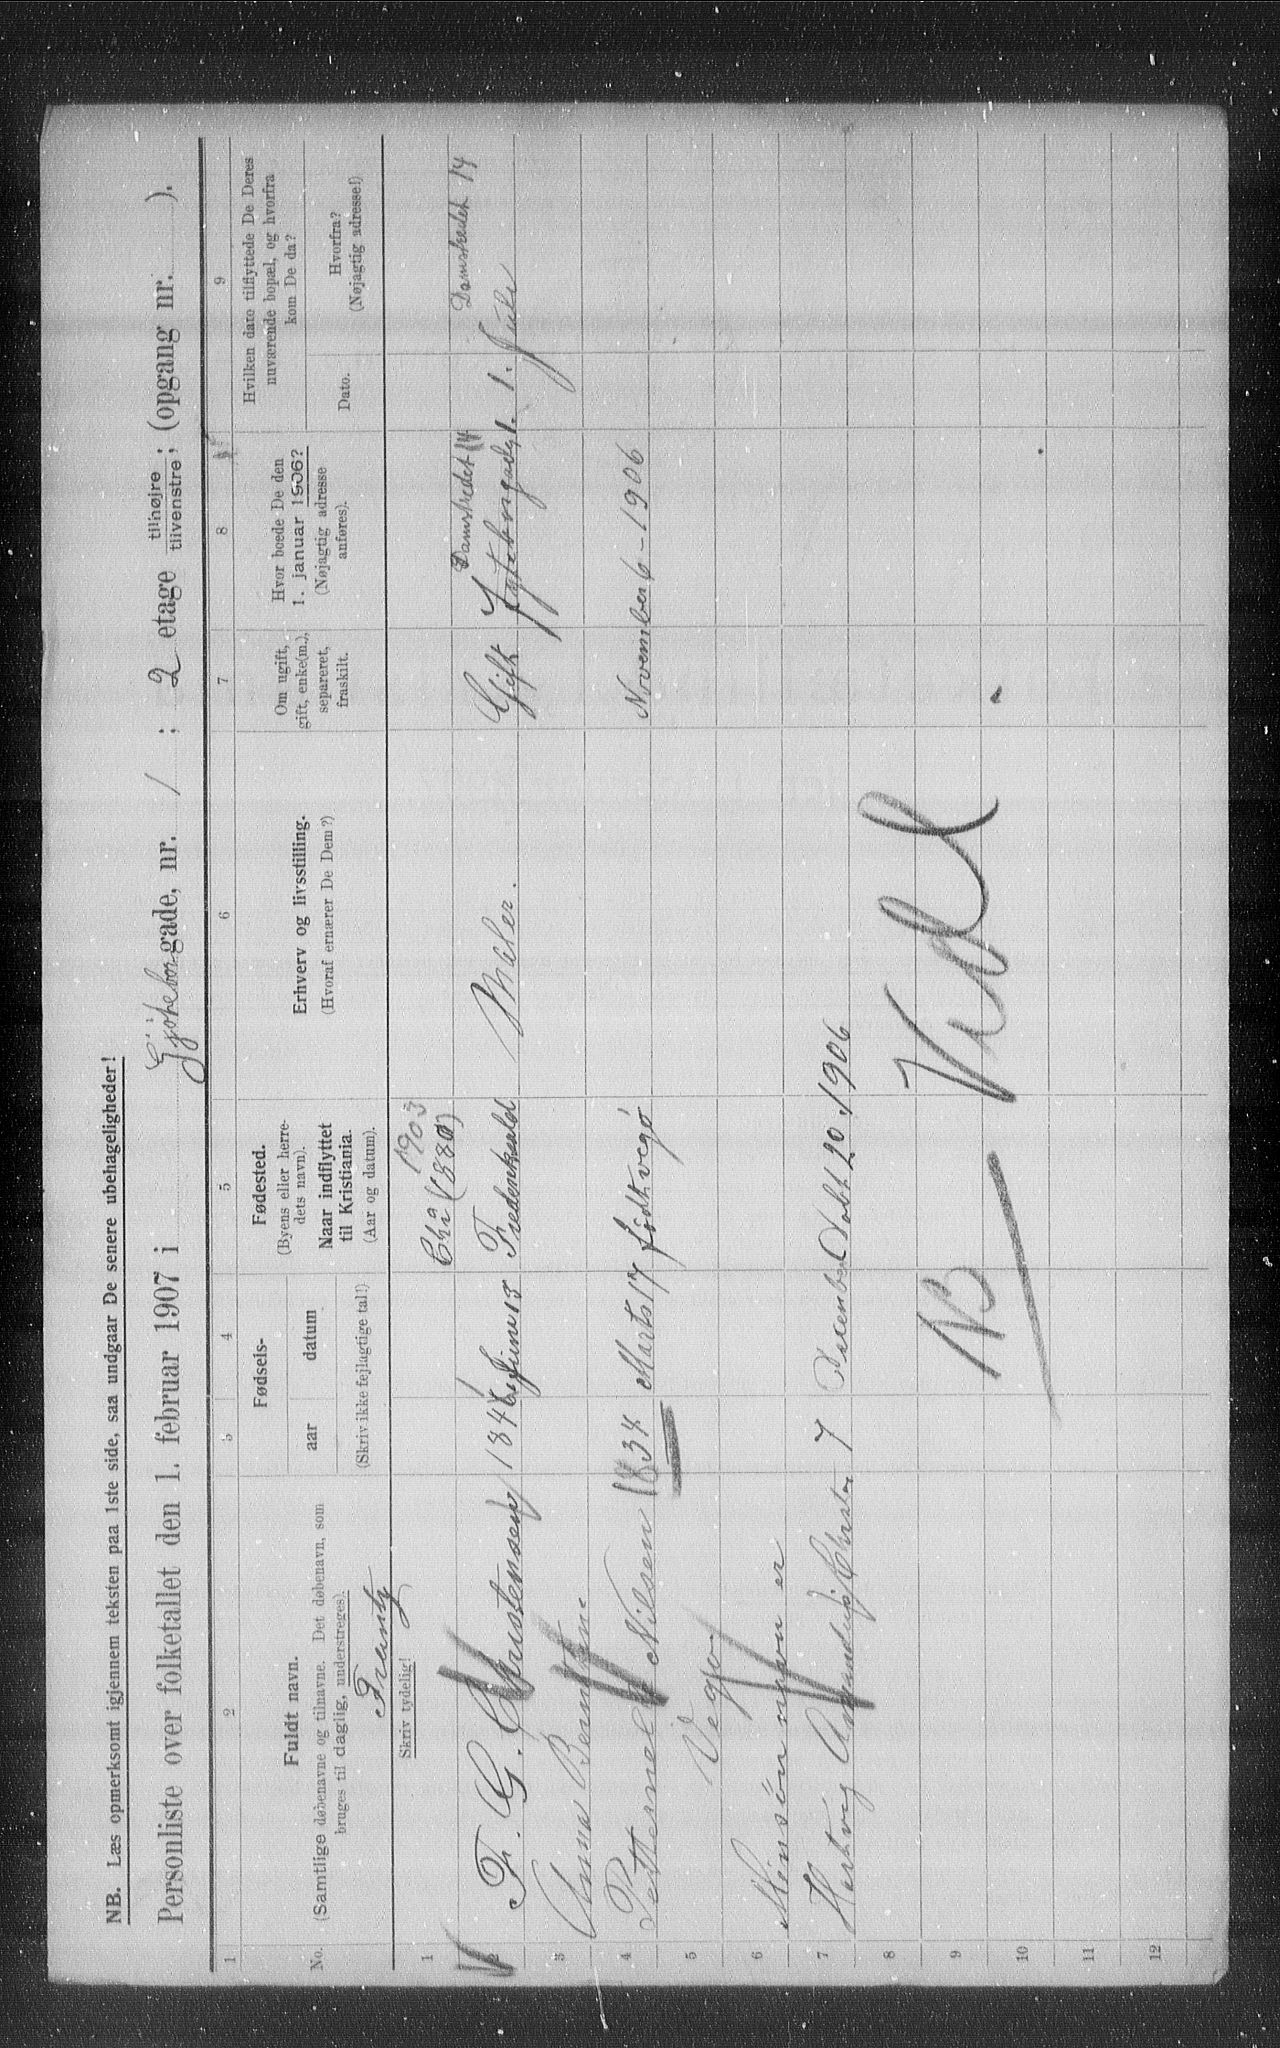 NB. Læs opmerksomt igjennem teksten paa 1ste side, saa undgaar De senere ubehageligheder!
Personliste over folketallet den 1. februar 1907 i Gjøteborggade, nr. 1; 2 etage tilhøjre / tilvenstre; (opgang nr. ).
1 2 3 4 5 6 7 8 9
No.
Fuldt navn.
(Samtlige døbenavne og tilnavne. Det døbenavn, som
bruges til daglig, understreges).
Skriv tydelig!
Fødsels-
aar
datum
(Skriv ikke fejlagtige tal!)
Fødested.
(Byens eller herre-
dets navn).
Naar indflyttet
til Kristiania.
(Aar og datum).
Erhverv og livsstilling.
(Hvoraf ernærer De Dem?)
Om ugift,
gift, enke(m.),
separeret,
fraskilt.
Hvor boede De den
1. januar 1906?
(Nøjagtig adresse
anføres).
Hvilken dato tilflyttede De Deres
nuværende bopæl, og hvorfra
kom De da?
Dato.
Hvorfra?
(Nøjagtig adresse!)
Frantz
1 1903
Chra (1880) Damstredet 14 Damstredet 14
2 F. G. Christensen 1846 Juni 15 Fredrikhald Maler. Gift 1. Juli
3 Anna
4 Nilsen 1834 Marts 17 født vegø November 6 - 1906
5 Vegø
6 Min søn navn er
7 Hartvig December 20 1906
8
9 NB
10
11
12